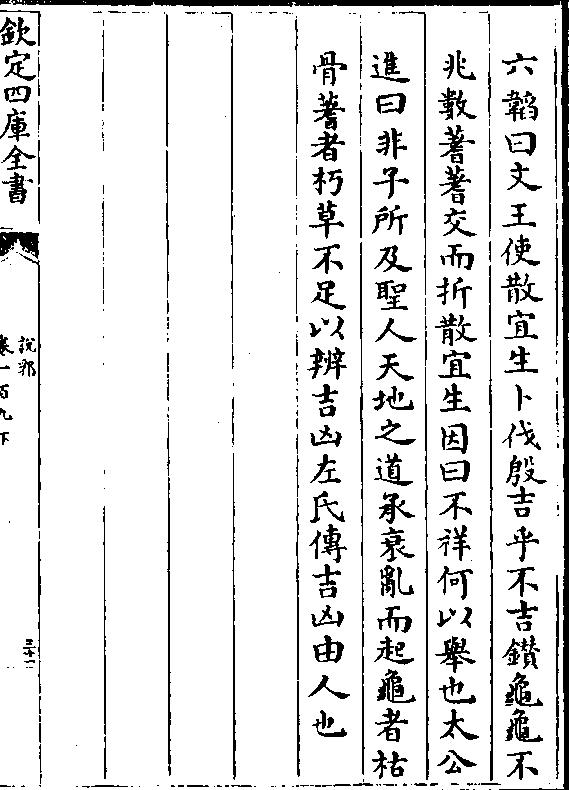 六韜曰文王使散宜生卜伐殷吉乎不吉鑚龜龜不
兆數蓍蓍交而折散宜生因曰不祥何以舉也太公
進曰非子所及聖人天地之道承衰亂而起龜者枯
骨蓍者朽草不足以辨吉凶左氏傳吉凶由人也
欽定四庫全書
說郛
卷一百九下
三十二